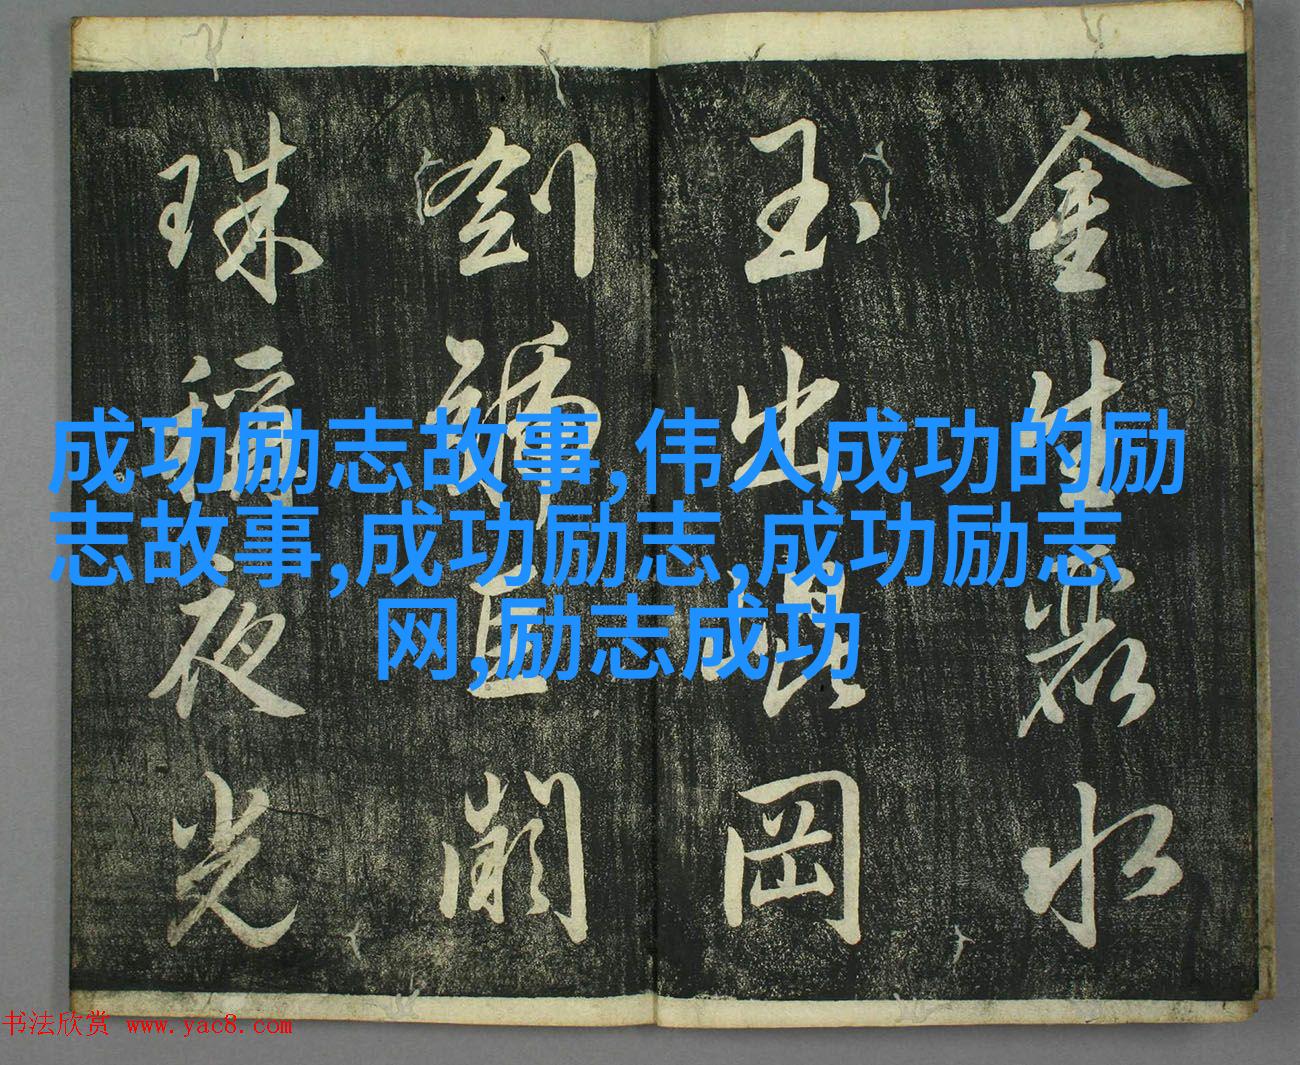 金生麗水
玉出崐岡
劍號巨闕
珠稱夜光
成功励志故事,伟人成功的励
志故事,成功励志,成功励志
网,励志成功
书法欣赏 www.yac8.com